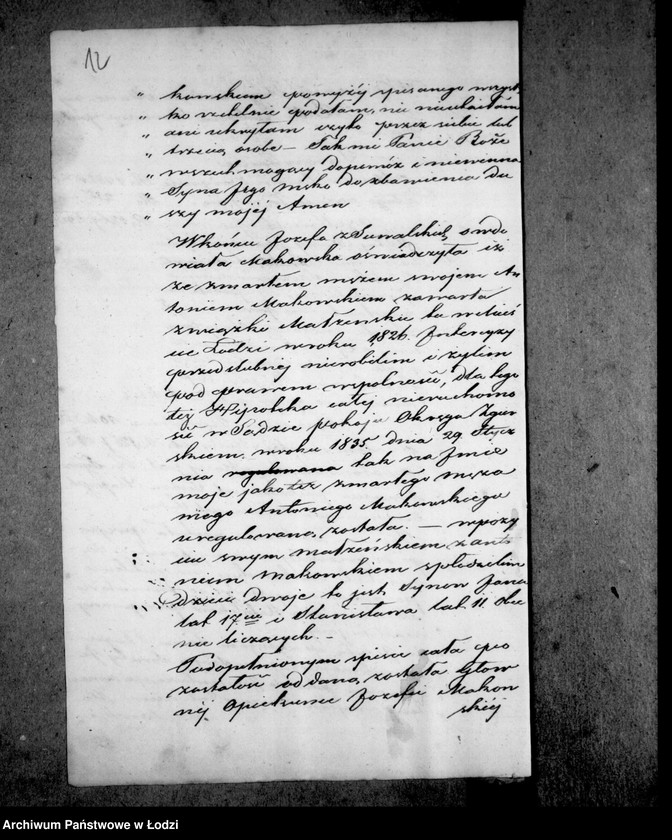 12
„ kowskiem powyżéj spisanego wszyst
„ ko rzetelnie podałam, nic nieutaiłam
„ ani ukryłam czyto przez siebie lub
„ trzecią osobę – Tak mi Panie Boże
„ wszechmogący dopomóż i niewinna
„ Syna Jego męka do zbawienia du
„ szy mojéj Amen
Wkońcu Józefa z Suwalskich owdo
wiała Makowska oświadczyła iż
ze zmarłem mężem swojem An
toniem Makowskiem zawarła
związki Małżeńskie tu w mieś
cie Łodzi w roku 1826. Intercyzy
przedślubnéj nierobiłim i żyłim
pod prawem wspólności, dla tego
też Hÿpoteka całéj nieruchomo
ści w Sądzie pokoju Okręgu Zgier
skiem w roku 1835. dnia 29 Stycz
nia regulowana tak na Imie
moje jako też zmarłego męża
mego Antoniego Makowskiego
uregulowaną została. – w pozy
ciu swym małżeńskiem z anto
niem Makowskiem spłodziłim
Dzieci dwoje to jest Synów Jana
lat 17. i Stanisława lat 11. obec
nie liczących. –
Po dopełnionym spisie cała po
zostałość oddaną została Głów
néj Opiekunce Józefie Makow
skiéj
Archiwum Państwowe w Łodzi